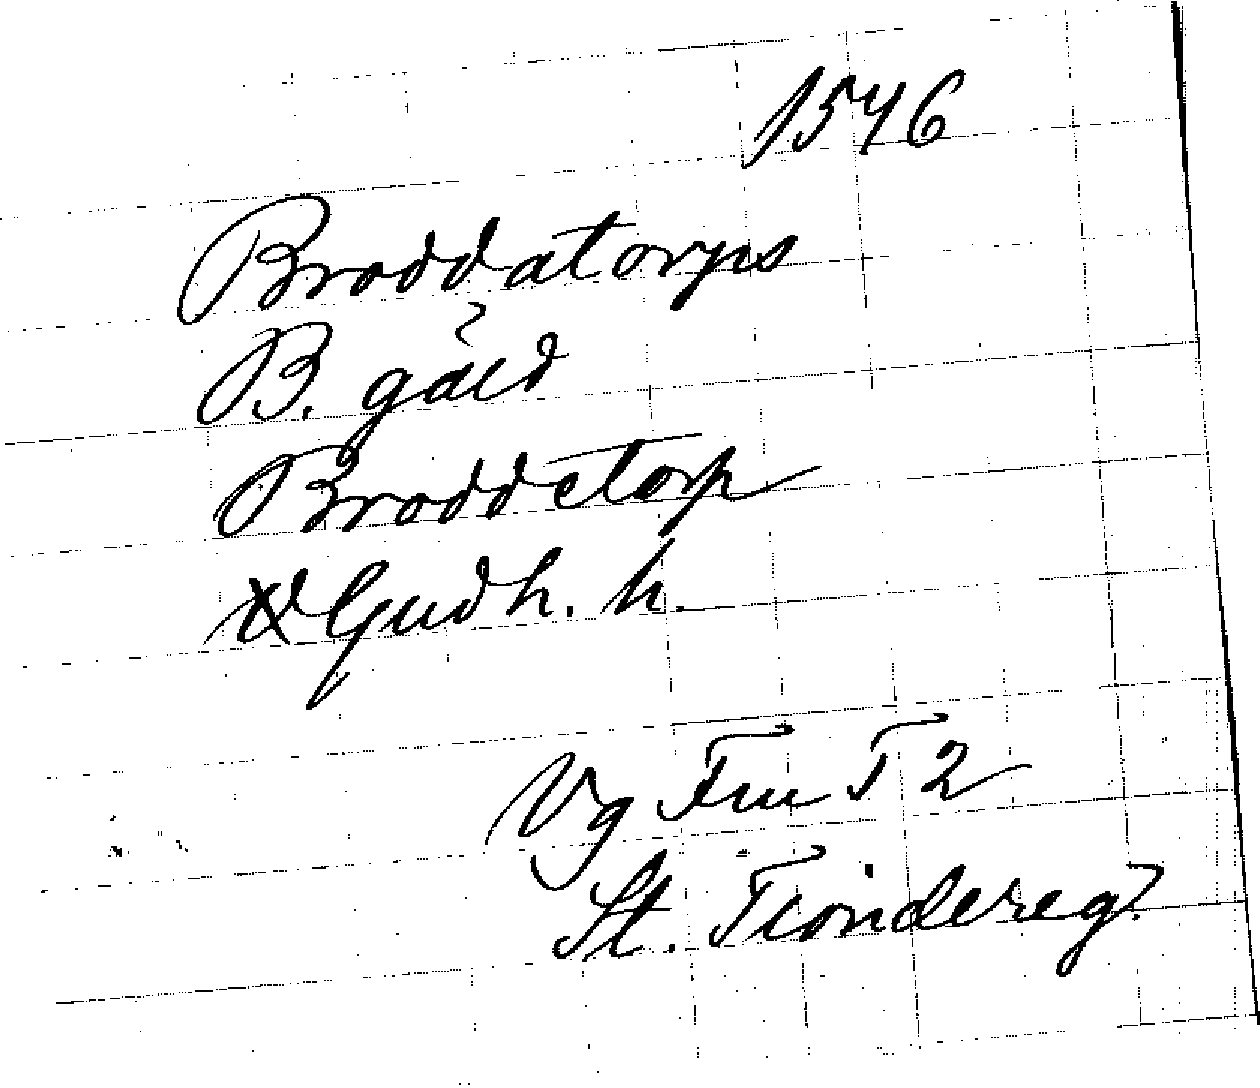 1546
Broddatorps
B. gäld
Broddetorp
Gudh. h.
Vg Fru T 2
St. Tiondereg.